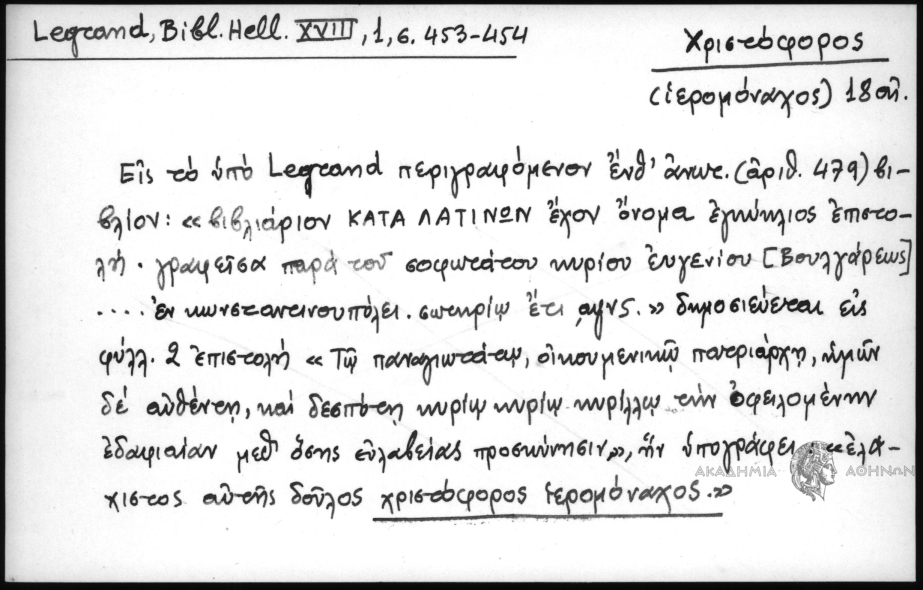 Legrand, Bibl. Hell. XVIII, 1, σ. 453-454
Χριστόφορος
(ἱερομόναχος) 18 αἰ.
Εἰς τὸ ὑπὸ Legrand περιγραφόμενον ἔνθ' ἀνωτ. (ἀριθ. 479) βι-
βλίον: «βιβλιάριον ΚΑΤΑ ΛΑΤΙΝΩΝ ἔχον ὄνομα ἐγκύκλιος ἐπιστο-
λή. γραφεῖσα παρὰ τοῦ σοφωτάτου κυρίου ἐυγενίου [Βουλγάρεως]
.... ἐν κωνσταντινουπόλει. σωτηρίῳ ἔτει ͵αψνς.» δημοσιεύεται εἰς
φύλλ. 2 ἐπιστολή «Τῷ παναγιωτάτῳ, οἰκουμενικῷ πατριάρχῃ, ἡμῶν
δέ αὐθέντῃ, καὶ δεσπότῃ κυρίῳ κυρίῳ κυρίλλῳ τὴν ὀφειλομένην
ἐδαφιαίαν μεθ' ὅσης εὐλαβείας προσκύνησιν», ἥν ὑπογράφει: «ἐλά-
χιστος αὐτῆς δοῦλος χριστόφορος ἱερομόναχος.»
ΑΚΑΔΗΜΙΑ ΑΘΗΝΩΝ